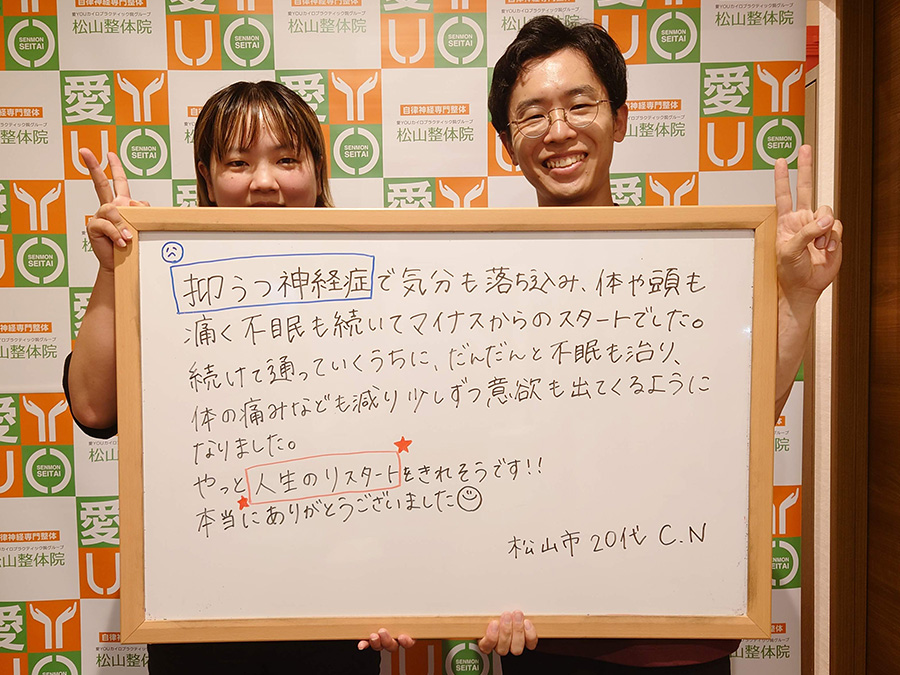 抑うつ神経症で気分も落ち込み、体や頭も
痛く不眠も続いてマイナスからのスタートでした。
続けて通っていくうちに、だんだんと不眠も治り、
体の痛みなども減り少しずつ意欲も出てくるように
なりました。
やっと人生のリスタートをきれそうです!!
本当にありがとうございました
松山市 20代 C.N
愛YOUカイロプラクティック院グループ
松山整体院
自律神経専門整体
松山整体院
愛
YOU
SENMON
SEITAI